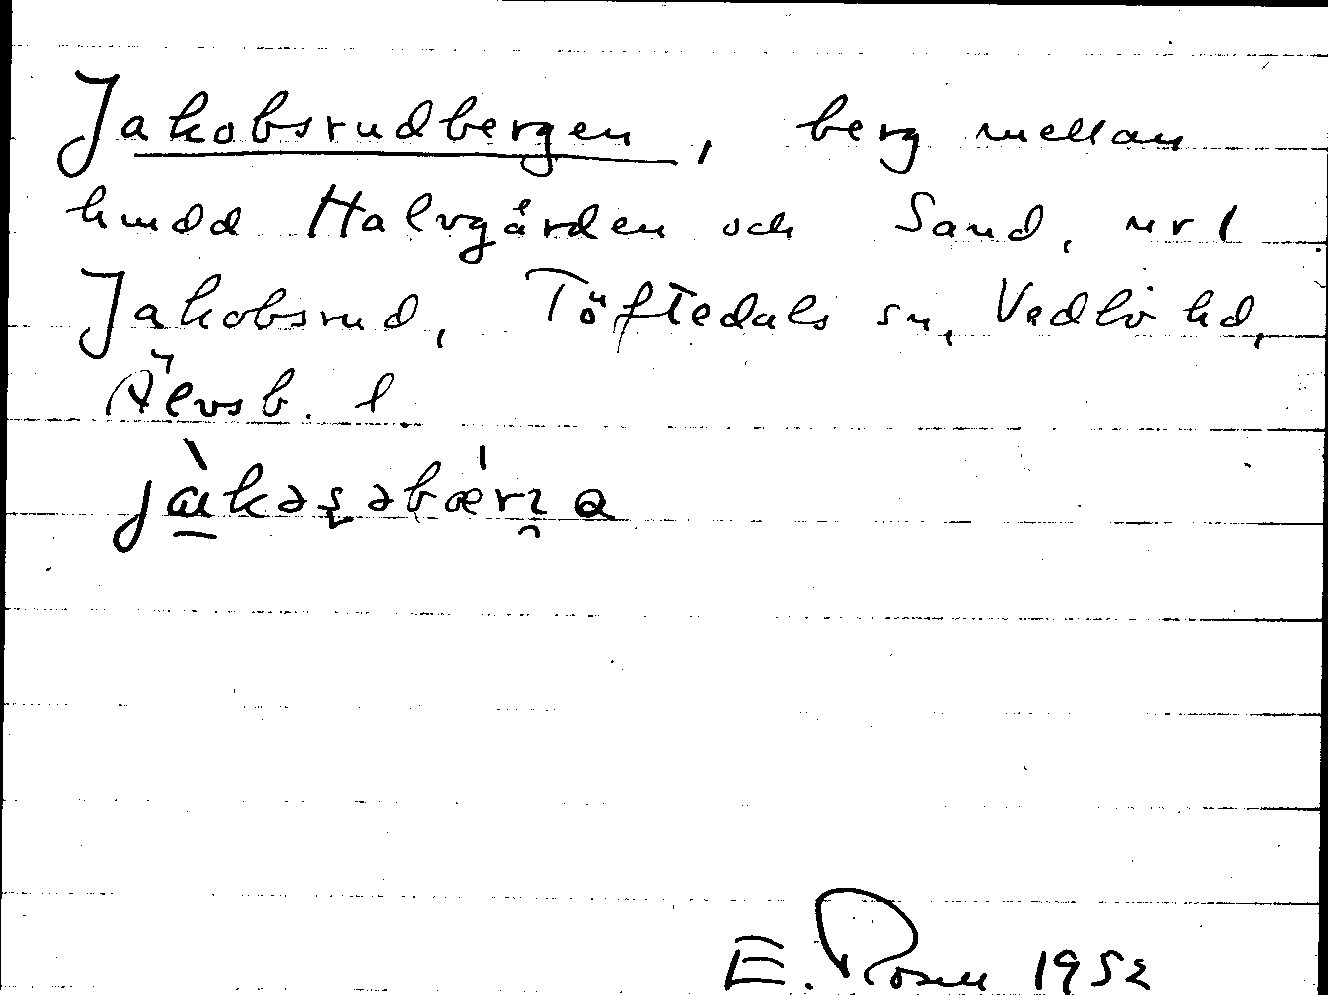 Jakobsrudbergen, berg mellan
hmdd Halvgården och Sand, nr 1
Jakobsrud, Töftedals sn, Vedbo hd,
Älvsb. l.
E. Rosell 1952